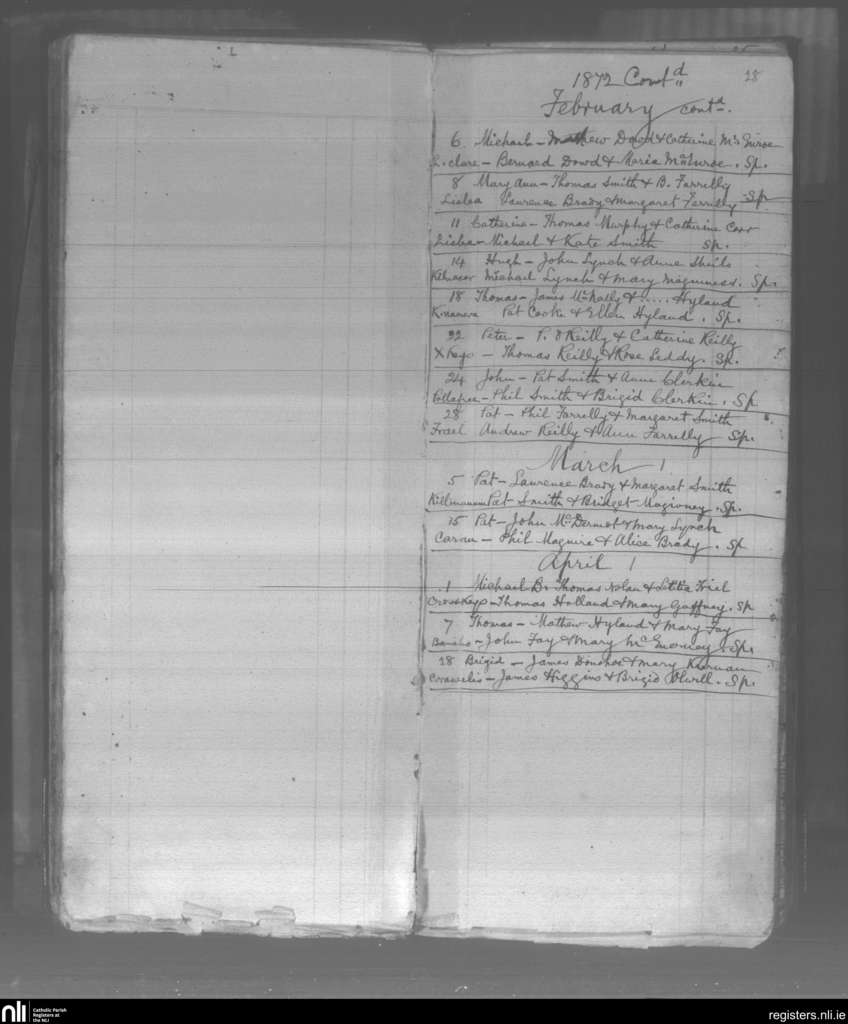 28
1872 Contd
February contd.
6 Michael - Mathew Dowd & Catherine Mc
L. clare - Bernard Dowd & Maria . Sp.
8 Mary Ann - Thomas Smith & B. Farrelly
Lislea Laurence Brady & Margaret Farrelly Sp
11 Catherine - Thomas Murphy & Catherine Carr
Lislea - Michael & Kate Smith Sp.
14 Hugh - John Lynch & Anne Sheils
Michael Lynch & Mary Maguiness. Sp.
18 Thomas - James McNally & ..... Hyland
Pat Cooke & Ellen Hyland . Sp.
22 Peter - P. O Reilly & Catherine Reilly
X Keys - Thomas Reilly & Rose Leddy. Sp.
24 John - Pat Smith & Anne Clerkin
Phil Smith & Brigid Clerkin. Sp
28 Pat - Phil Farrelly & Margaret Smith
Andrew Reilly & Ann Farrelly Sp.
March
5 Pat - Laurence Brady & Margaret Smith
Pat Smith & Bridget . Sp.
15 Pat - John McDermot & Mary Lynch
Carau - Phil Maguire & Alice Brady . Sp
April
1 Michael B. Thomas Nolan & Letitia Friel
CrossKeys - Thomas Holland & Mary Gaffney. Sp
7 Thomas - Mathew Hyland & Mary Fay
John Fay & Mary . Sp.
28 Brigid - James Donohoe & Mary Kiernan
James Higgins & Brigid . Sp.
nli
Catholic Parish
Registers at
the NLI
registers.nli.ie